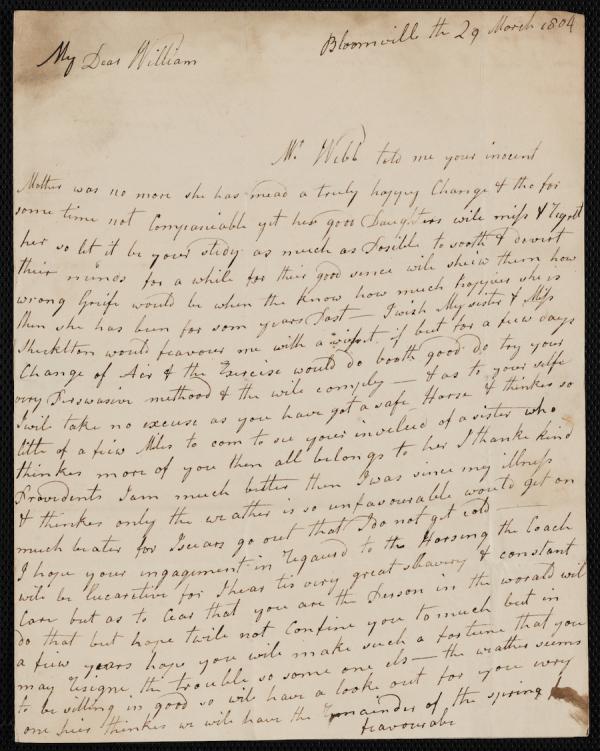 Bloomville th 29 March 1804
My Dear William
Mr Webb told me your inocent
Mother was no more she has mead a truly happy Change & tho for
some time not Companiable yet her good Daughters wile miss & Regrett
her so let it be your study as much as Posible to sooth & divert
their minds for a while for their good sence wile shew them how
wrong Greife would be when the know how much happier she is
then she has been for som years Past — I wish My sister & Miss
Shecklton would feavour me with a visset if but for a few days
Change of Air & the Exercise would do booth good do try your
very Perswasive method & the wile comply — & as to your selfe
I wil take no excuse as you have got a safe Horse & thinkes so
litle of a few Miles to com to see your inveleed of a sister who
thinkes more of you then all belongs to her I thanke kind
Providents I am much better then I was since my illness
& thinkes only the weather is so unfavourable would get on
much beater for I scears go out that I do not get cold —
I hope your ingagement in regaurd to the Horsing the Coach
wile be lucaretive for I hear tis very great slavery & constant
Care but as to Cear that you are the Person in the worald wil
do that but hope twile not Confine you to much but in
a few years hope you wile make such a fortune that you
may resigne the trouble so some one els — the weather seems
to be sitling in good so wile have a looke out for you very
one hier thinkes we wile have the remainder of the spring
feavourabe